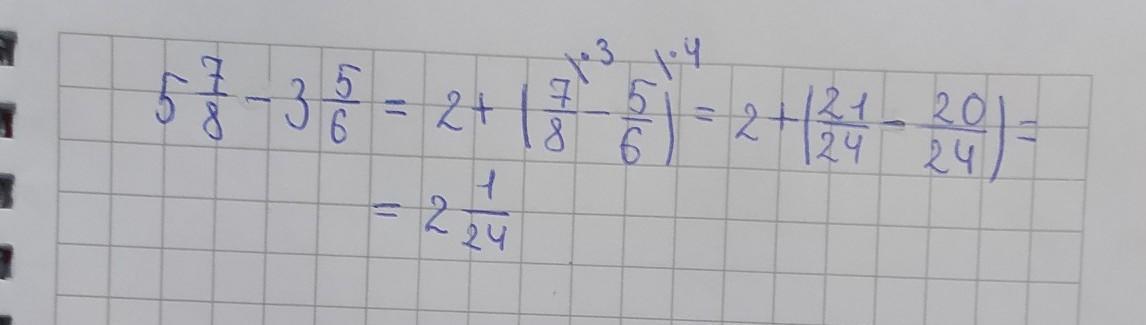 5 7/8 - 3 5/6 = 2 + (7/8 \·3 - 5/6 \·4) = 2 + (21/24 - 20/24) =
= 2 1/24